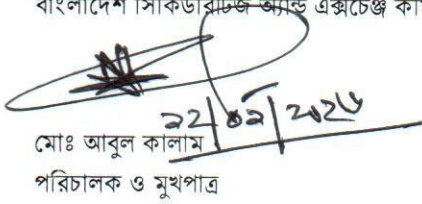 বাংলাদেশ সিকিউরিটিজ অ্যান্ড এক্সচেঞ্জ কমি
২২/০২/২০২৬
মোঃ আবুল কালাম
পরিচালক ও মুখপাত্র